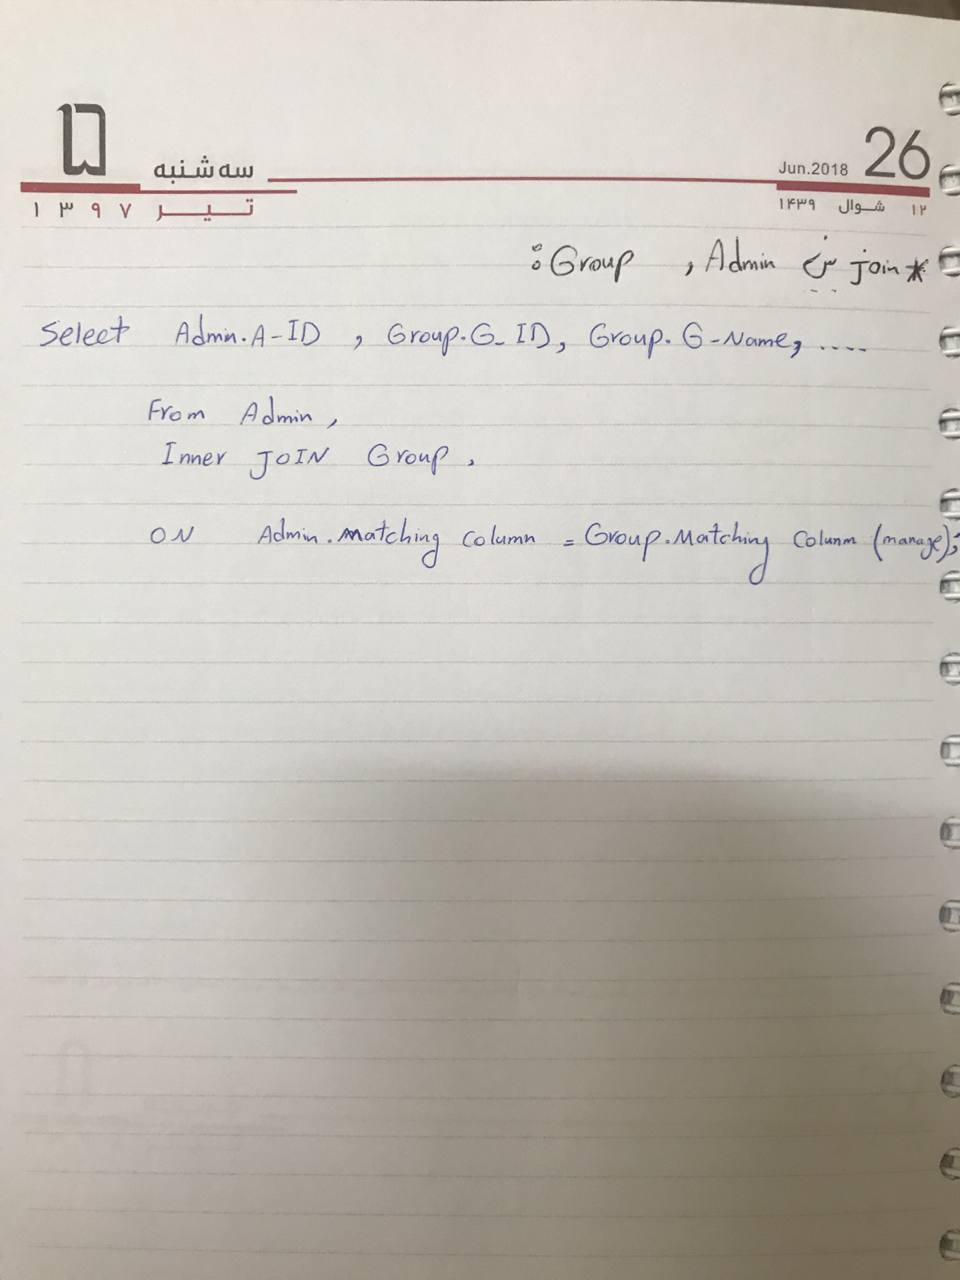 ۵ سه شنبه Jun.2018 26
۱۳۹۷ تیر ۱۴۳۹ شوال ۱۲
* join بین Admin و Group :
Select Admn.A-ID , Group.G_ID, Group.G-Name, ....
From Admin,
Inner JOIN Group,
ON Admin.matching column = Group.Matching Colunm (manage);